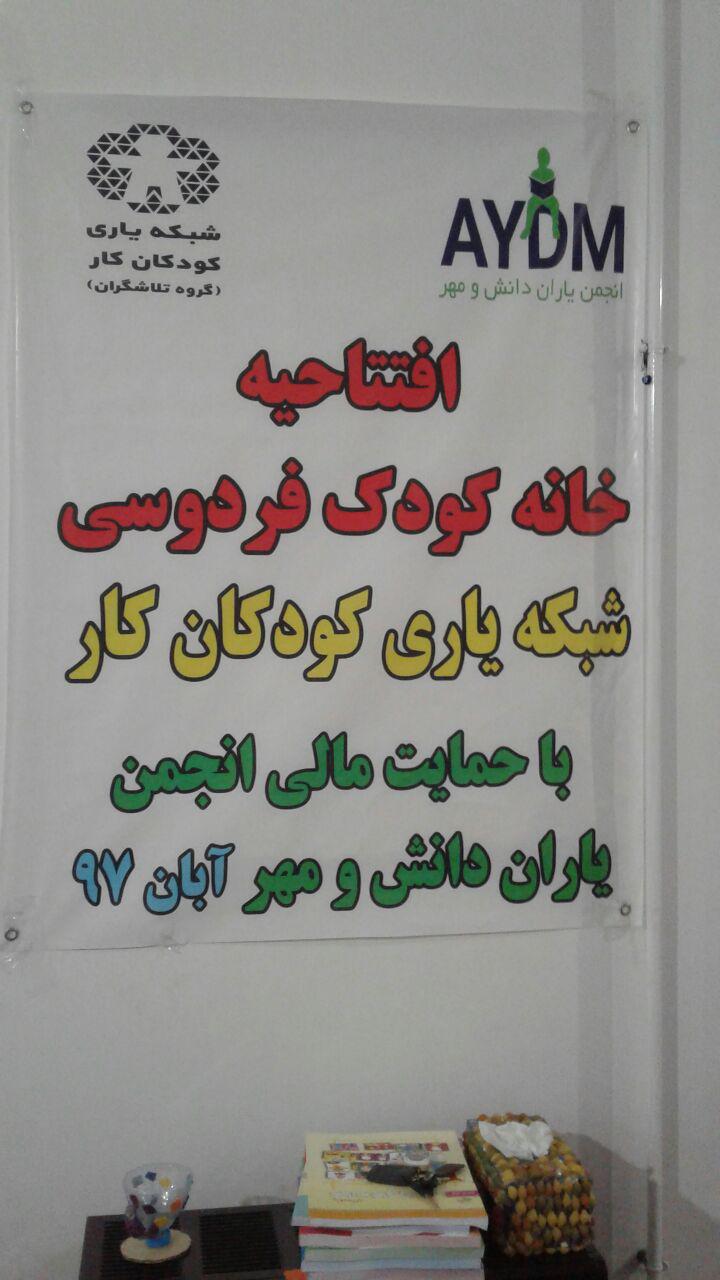 شبکه یاری
کودکان کار
(گروه تلاشگران)
AYDM
انجمن یاران دانش و مهر
افتتاحیه
خانه کودک فردوسی
شبکه یاری کودکان کار
با حمایت مالی انجمن
یاران دانش و مهر آبان ۹۷